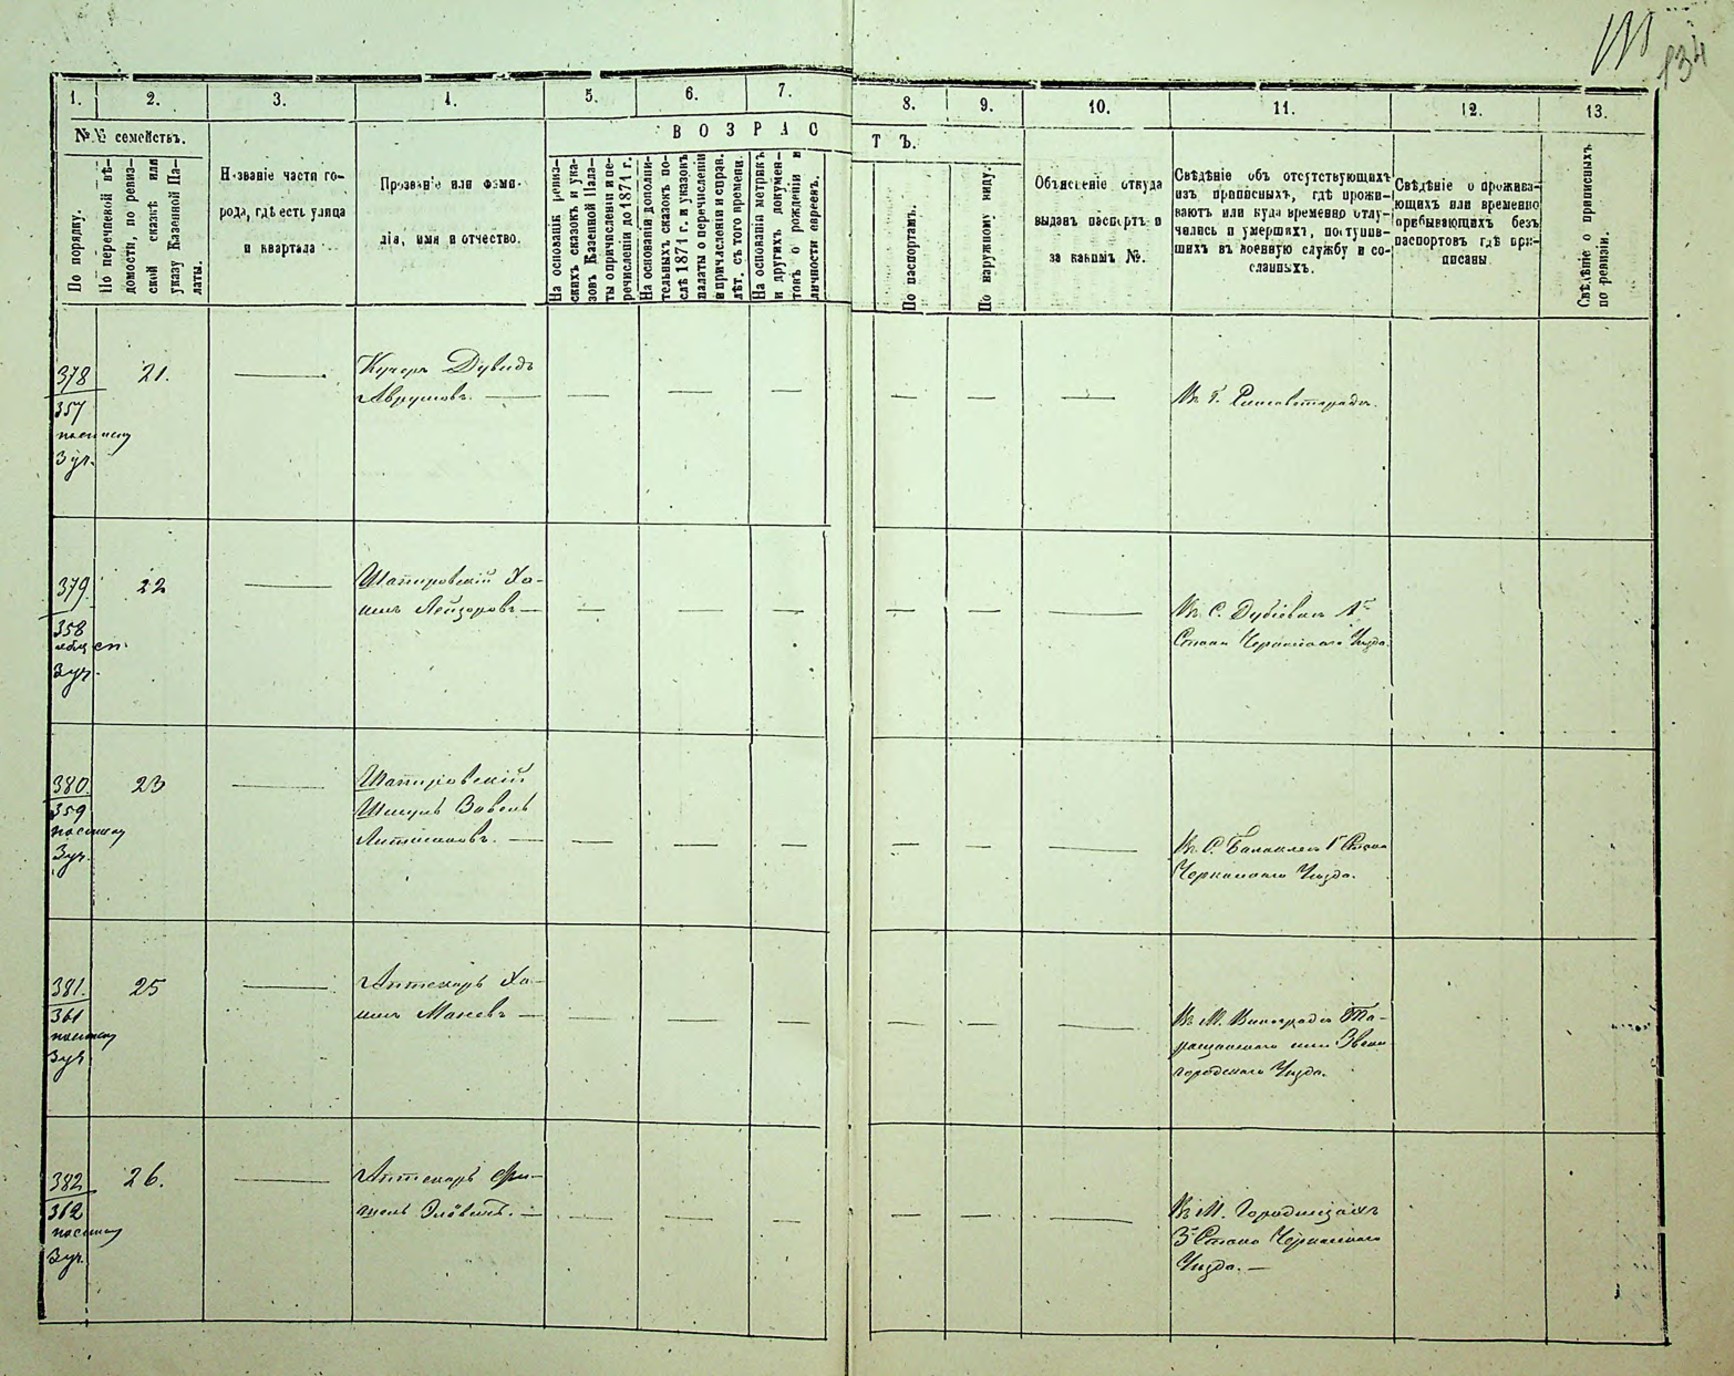 134
1. 2. 3. 4. 5. 6. 7. 8. 9. 10. 11. 12. 13.
№№ семействъ.
По порядку.
По перечневой вѣ-
домости, по ревиз-
ской сказкѣ или
указу Казенной Па-
латы.
Названіе части го-
рода, гдѣ есть улица
и квартала
Прозваніе или фами-
лія, имя и отчество.
ВОЗРАСТЪ.
На основаніи ревиз-
скихъ сказокъ и ука-
зовъ Казенной Пала-
ты о причисленіи и пе-
речисленіи до 1871 г.
На основаніи дополни-
тельныхъ сказокъ по-
слѣ 1871 г. и указовъ
палаты о перечисленіи
и причисленіи и справ.
лѣт. съ того времени.
На основаніи метрикъ
и другихъ докумен-
товъ о рожденіи и
личности евреевъ.
По паспортамъ.
По наружному виду.
Объясненіе откуда
выданъ паспортъ и
за какимъ №.
Свѣдѣніе объ отсутствующихъ
изъ приписныхъ, гдѣ прожи-
ваютъ или куда временно отлу-
чились и умершихъ, поступив-
шихъ въ военную службу и со-
сланныхъ.
Свѣдѣніе о прожива-
ющихъ или временно
прибывающихъ безъ
паспортовъ гдѣ при-
писаны
Свѣдѣніе о приписныхъ
по ревизіи.
378 21. — Кучеръ Дувидъ
357 Аврумовъ. — — — — — — — Въ г. Елисаветградѣ.
3 уч.
379. 22 — Шапировскій Ха-
358 имъ Лейзоровъ — — — — — — — Въ С. Дубіевкѣ 1го
3 уч. Стана Черкаскаго Уѣзда.
380. 23 — Шапировскій
359 Шмуль Вавель
3 уч. — — — — — — — Въ С. Балаклеѣ 1го Стана
Черкаскаго Уѣзда.
381. 25 — Аптекарь Ха-
361 имъ — — — — — — — Въ М. Виноградѣ Та-
3 уч. ращанскаго или Звени
городскаго Уѣзда.
382 26. — Аптекарь
362 — — — — — — — Въ М. Городищахъ
3 уч. 3го Стана Черкаскаго
Уѣзда. —